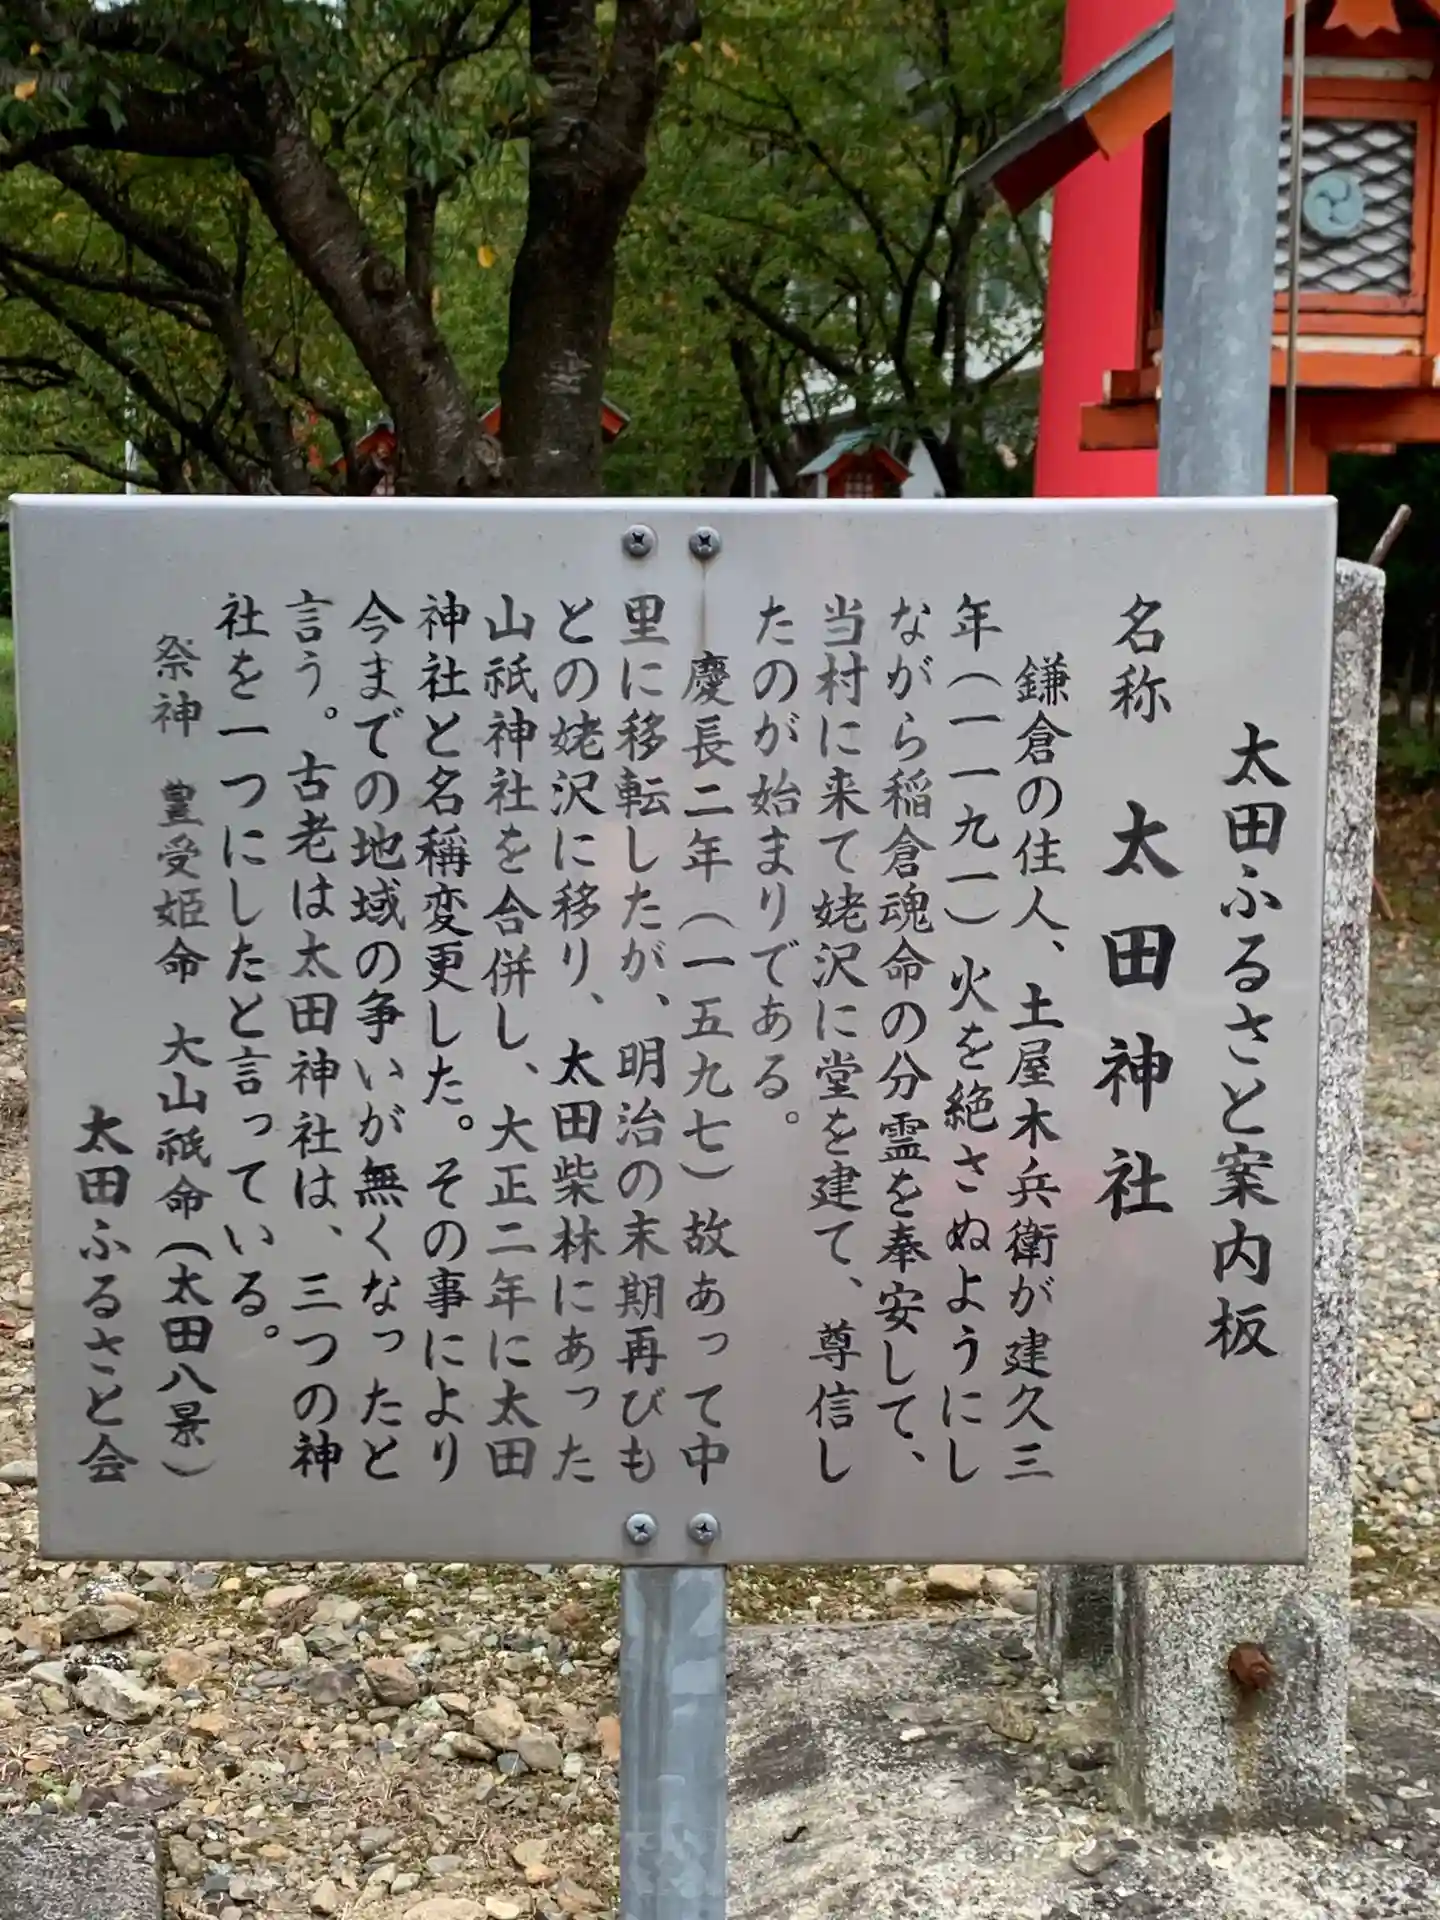 太田ふるさと案内板
名称　太田神社
鎌倉の住人、土屋木兵衛が建久三
年（一一九一）火を絶さぬようにし
ながら稲倉魂命の分霊を奉安して、
当村に来て姥沢に堂を建て、尊信し
たのが始まりである。
慶長二年（一五九七）故あって中
里に移転したが、明治の末期再びも
との姥沢に移り、太田柴林にあった
山祇神社を合併し、大正二年に太田
神社と名稱変更した。その事により
今までの地域の争いが無くなったと
言う。古老は太田神社は、三つの神
社を一つにしたと言っている。
祭神　豊受姫命　大山祇命（太田八景）
太田ふるさと会